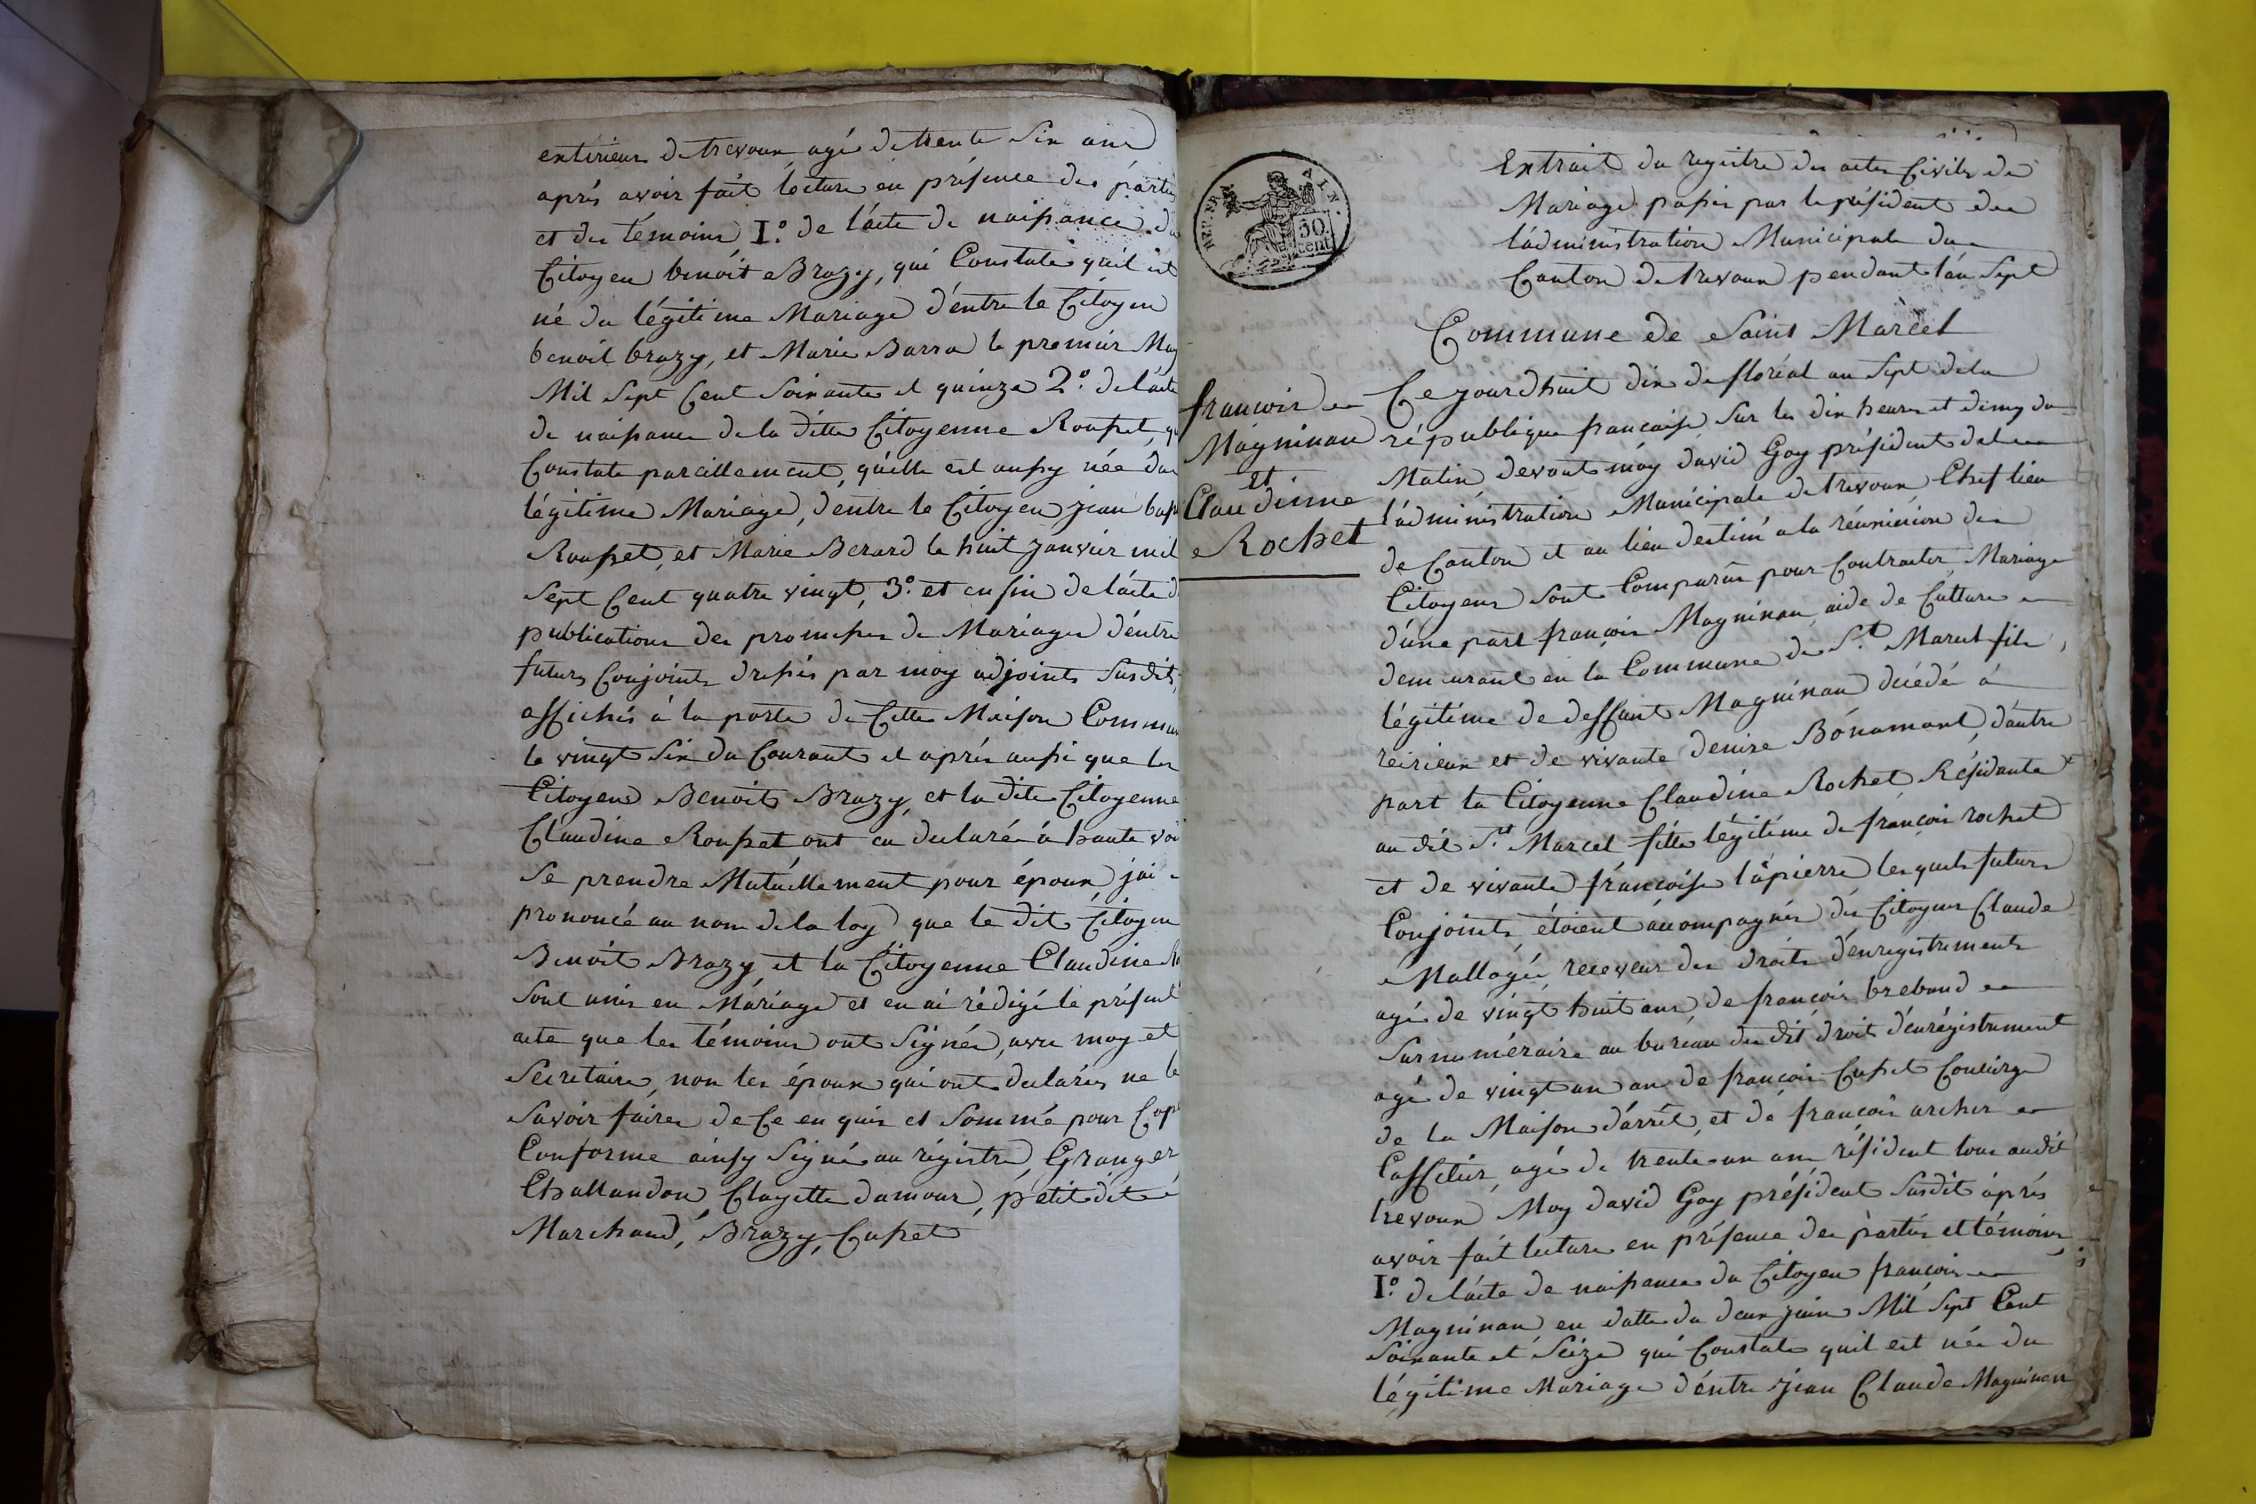 extérieur de trevoux agé de trente Six ans
après avoir fait lecture en présence des partie
et des témoins I.º de l'acte de naissance du
Citoyen benoit Brazy, qui Constate quil est
né du légitime Mariage d'entre le Citoyen
benoit brazy, et Marie Barra le premier May
Mil Sept Cent Soixante et quinze 2.º de l'acte
de naissance de la ditte Citoyenne Rousset, qu
Constate pareillement, qu'elle est aussy née du
légitime Mariage, d'entre le Citoyen jean bap
Rousset, et Marie Berard le huit janvier mil
Sept Cent quatre vingt, 3.º et enfin de l'acte d
publications des promesses de Mariages d'entre
futurs Conjoints dressés par moy adjoints Susdit,
affichés à la porte de Cette Maison Commun
le vingt Six du Courant et après aussi que les
Citoyen Benoit Brazy, et la dite Citoyenne
Claudine Rousset ont eu déclaré à haute voi
Se prendre Mutuéllement pour époux, jai
prononcé au nom de la loy que le dit Citoyen
Benoit Brazy et la Citoyenne Claudine Ro
Sont unis en Máriage et en ai rédigé le présent
acte que les témoins ont Signés, avec moy et
Secretaire, non les époux qui ont déclarés ne le
Savoir faire de Ce enquis et Sommé pour Cop
Conforme ainsy Signé au régistre, Granger
Challandon, Clayette damour, pétit dit
Marchand, Brazy, Cusset
REP. FRA. AIN.
50
cent
Extrait du registre des actes Civils de
Mariage passés par le président de
l'administration Municipale du
Canton de trevoux pendant l'an Sept
Commune de Saint Marcel
francois
Magninau
et
Claudinne
Rochet
Ce jourdhuit dix de floréal an Sept de la
république francaise, Sur les dix heures et demy du
Matin devant moy david Gay président de
l'administration Municipale de trevoux Chef lieu
de Canton et au lieu destiné a la réunicion des
Citoyens Sont Comparus pour Contracter Mariage
d'une part françois Magninau, aide de Culture
demeurant en la Commune de S.t Marcel fils
légitime de deffunt Magninau décédé à
reirieux et de vivante denise Bonamant, d'autre
part la Citoyenne Claudine Rochet Résidante
au dit S.t Marcel fille légitime de françois rochet
et de vivante françoise lapierre lesquels futurs
Conjoints étoient accompagnés des Citoyens Claude
Mallagié, receveur des droits d'enregistrements
agé de vingt huit ans, de françois brebaud
Surnuméraire au bureau du dit droit d'énrégistrement
agé de vingt un an de françois Cusset Concierge
de la Maison d'arrêt, et de françois archer
Caffetier, agé de trente un ans résident tous audit
trevoux Moy david Gay président Susdit après
avoir fait lecture en présence des parties et témoins,
I.º de l'acte de naissance du Citoyen francois
Magninau en datte du deux juin Mil Sept Cent
Soixante et Seize qui Constate quil est née du
légitime Mariage d'éntre jean Claude Magninau